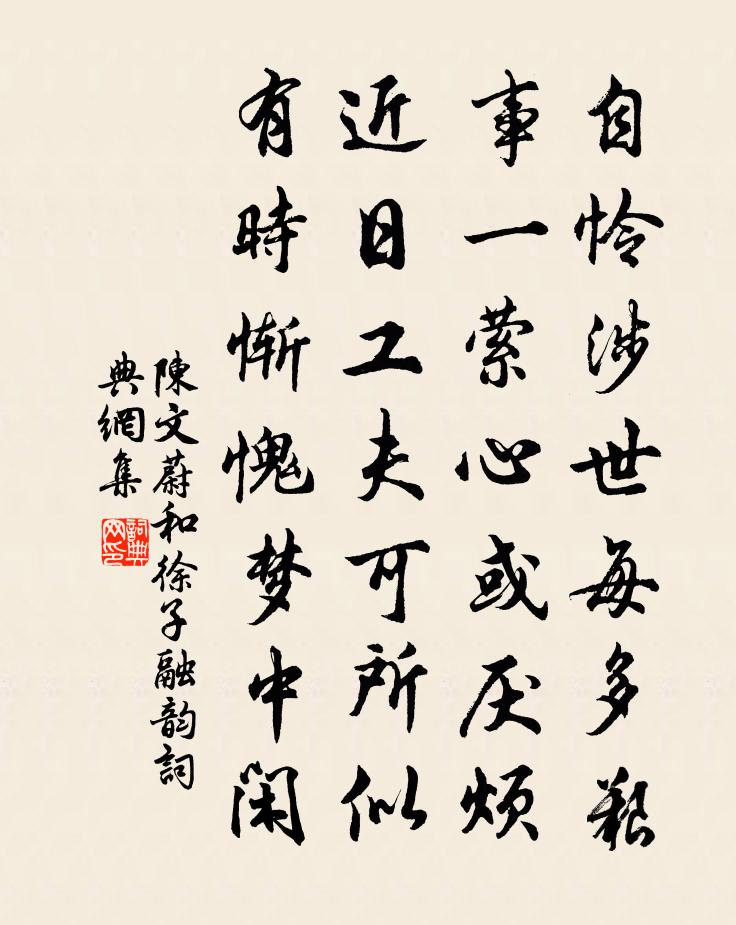 自怜涉世每多艱
事一萦心或厌烦
近日工夫可所似
有時惭愧梦中闲
陳文蔚和徐子融韵詞
典網集
詞典網印